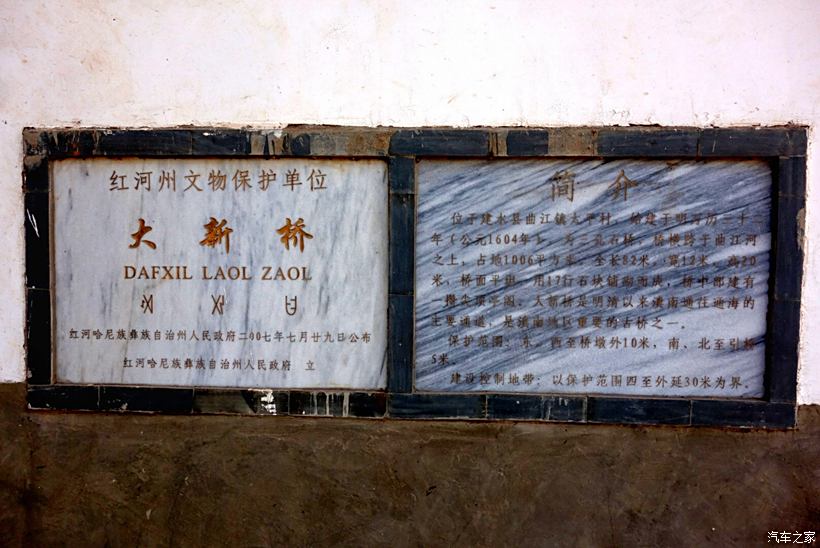 红河州文物保护单位
大新桥
DAFXIL LAOL ZAOL
红河哈尼族彝族自治州人民政府二〇〇七年七月廿九日公布
红河哈尼族彝族自治州人民政府 立
简介
位于建水县曲江镇太平村，始建于明万历三十二
年（公元1604年），为二孔石桥，桥横跨于曲江河
之上，占地1006平方米，全长82米，宽12米，高20
米，桥面平坦，用17行石块铺砌而成，桥中部建有
一攒尖顶亭阁。大新桥是明清以来滇南通往通海的
主要通道，是滇南地区重要的古桥之一。
保护范围：东、西至桥墩外10米，南、北至引桥
5米。
建设控制地带：以保护范围四至外延30米为界。
汽车之家